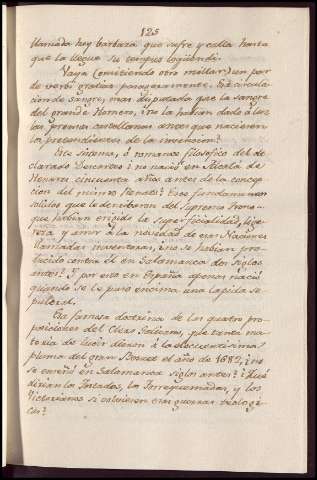 125
llamada hoy barbara que sufre y calla hasta
que la llegue su tempus loquendi.
Vaya (omitiendo otro millar) un par
de verbi gratias pasageramente. Esa circula-
cion de sangre, mas disputada que la sangre
del grande Homero, ¿no la habian dado á luz
las prensas castellanas antes que naciesen
los pretendientes de la invencion?
Ese sistema, ó romance filosofico del de-
clarado Descartes ¿no nació en Alcalá de
Henares cincuenta años antes de la concep-
cion del mismo Renato? Esos fundamentos
solidos que le derribaron del supremo trono
que habian erigido la superficialidad, lige-
reza y amor á la novedad de esas Naciones
llamadas inventoras, ¿no se habian pro-
ducido contra él en Salamanca dos siglos
antes? Y por eso en España apenas nació
quando se le puso encima una lapida se-
pulcral.
La famosa doctrina de las quatro pro-
posiciones del Clero Galicano, que tanta ma-
teria de lucir dieron á la eloquentisima
pluma del gran Bosuet el año de 1682, ¿no
se enseñó en Salamanca siglos antes? ¿Qué
dirian los Tostados, los Torrequemadas, y los
Victorianos si volviesen esas guerras teologi-
cas?